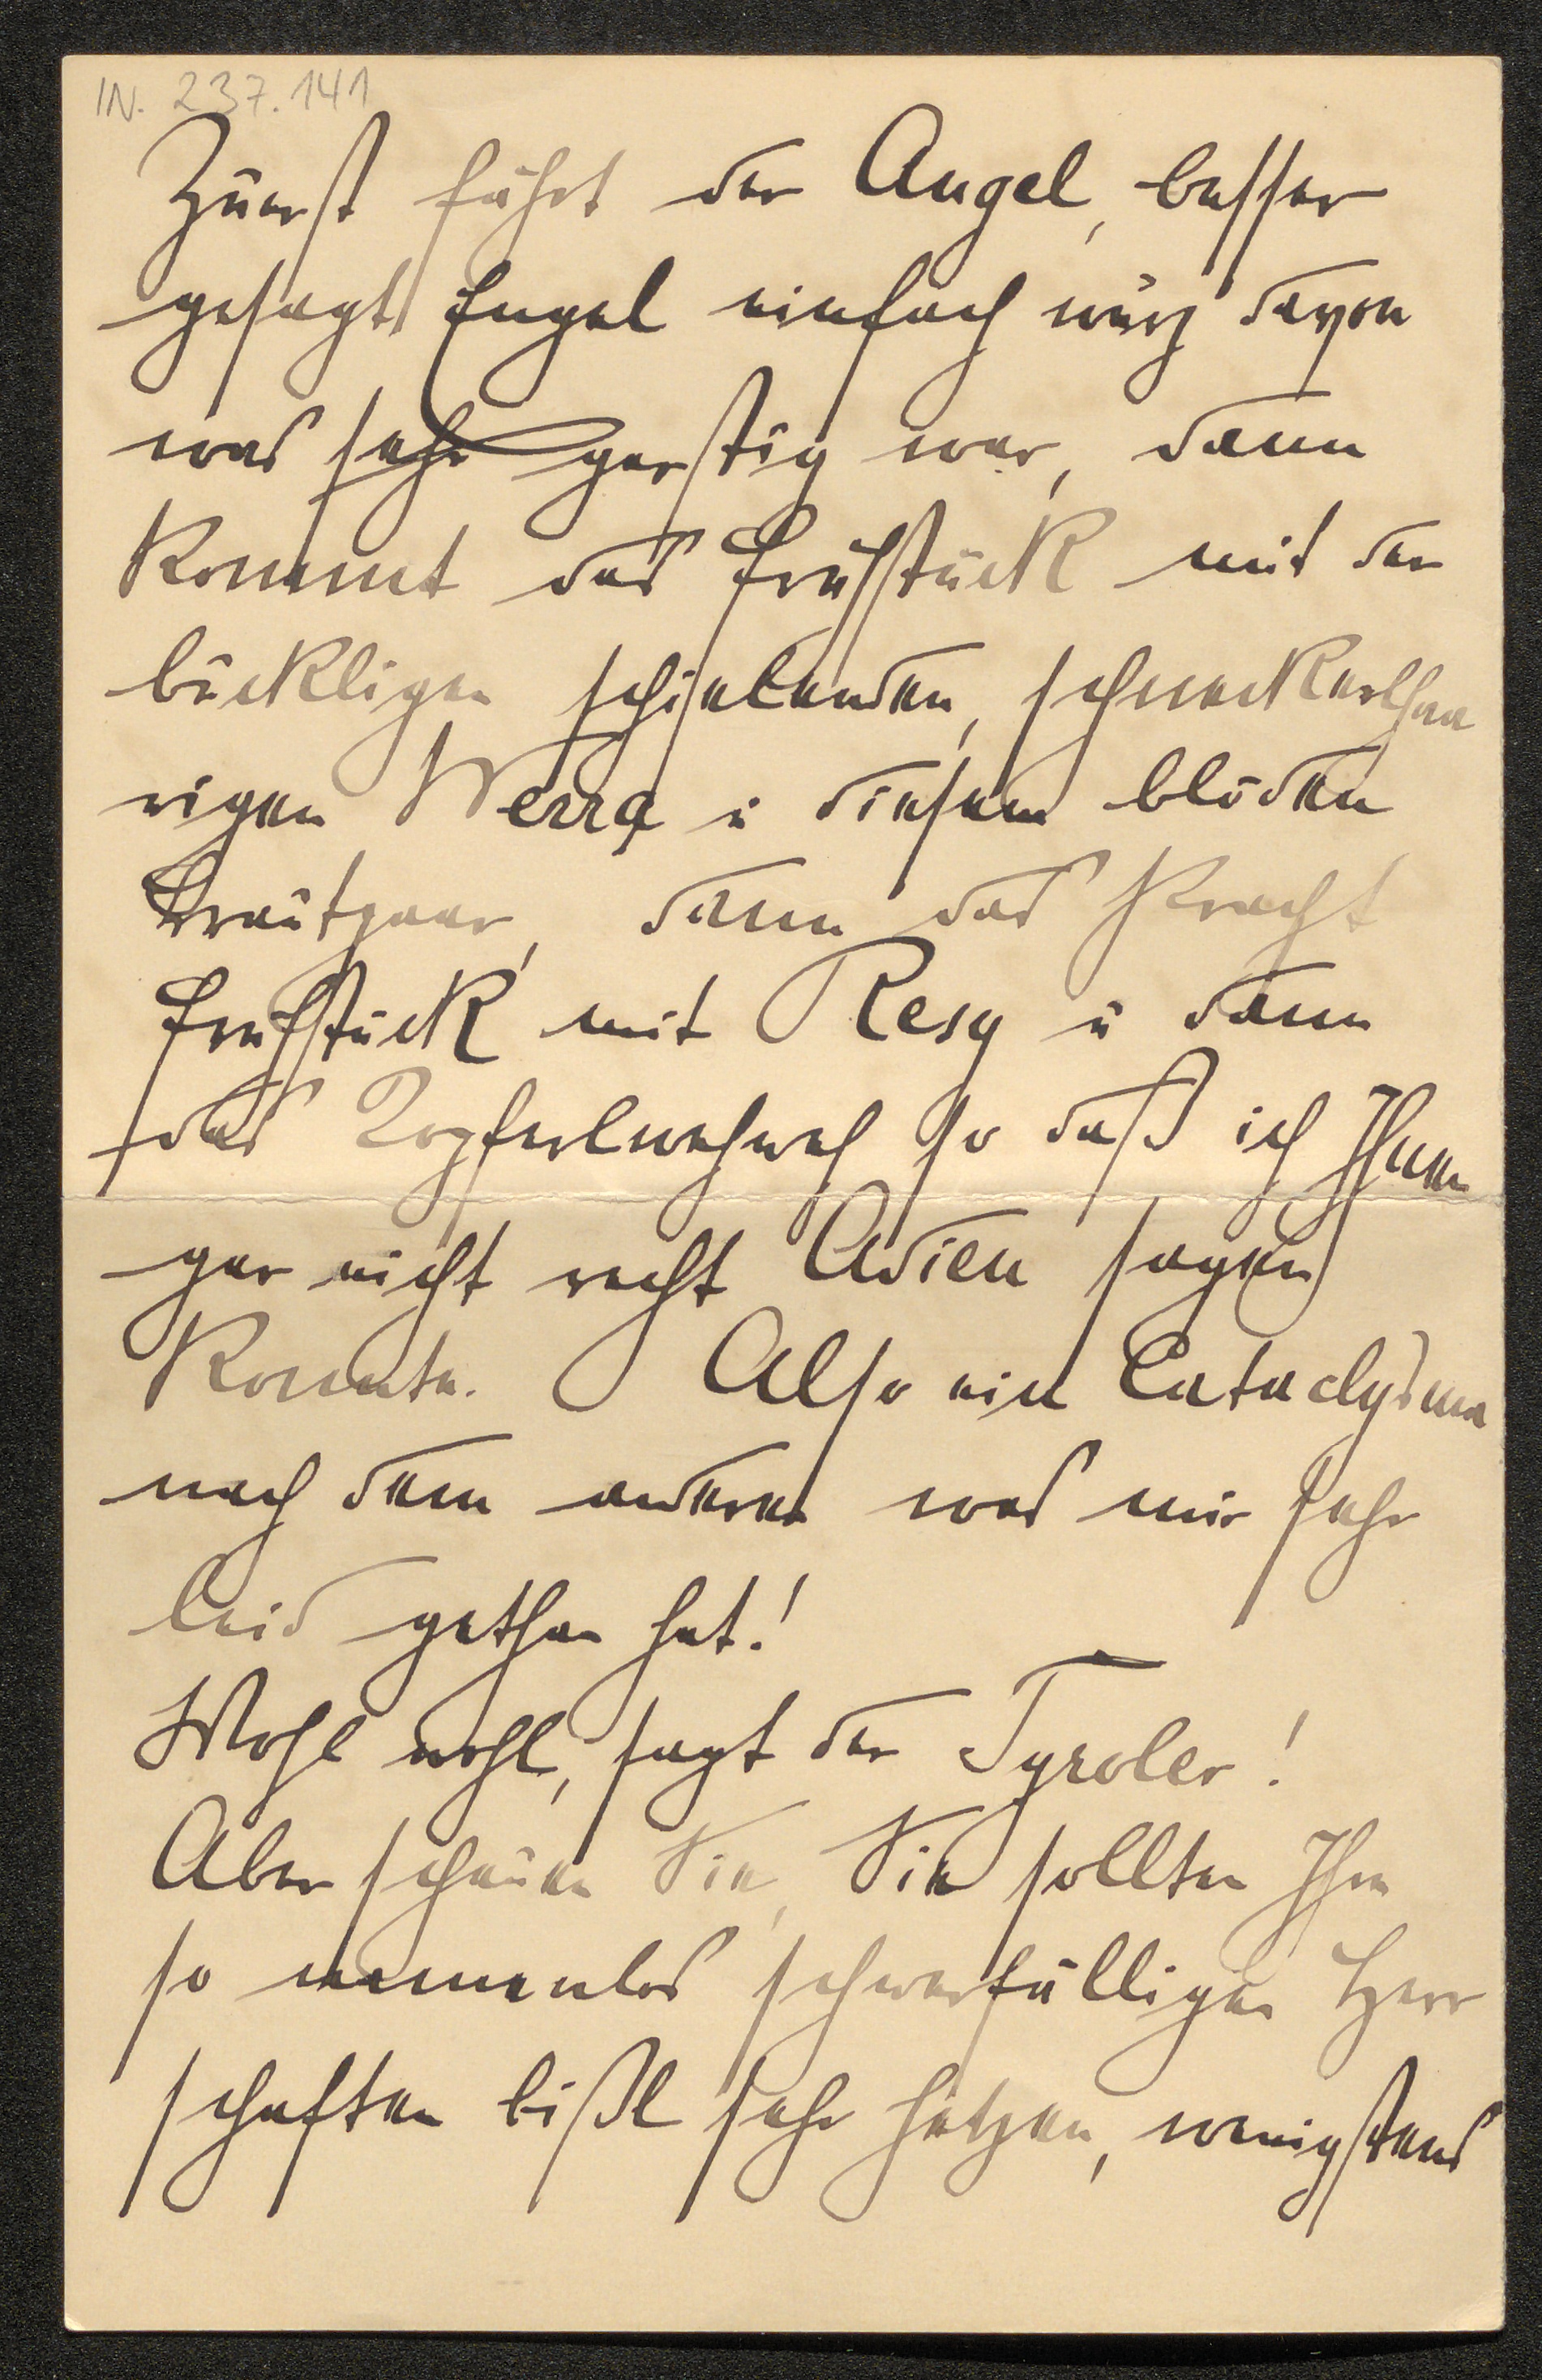 IN. 237.141
Zuerst fährt der Angel, besser
gesagt Engel einfach davon
was sehr garstig war, dann
kommt das Frühstück mit der
buckligen schielenden, schneckerlhaa
rigen Werra u diesem blöden
Brautpaar, dann das Kracht
frühstück mit Resy u dann
das so daß ich Ihnen
gar nicht recht Adieu sagen
konnte. Also ein Cataclysma
nach dem anderen was mir sehr
leid gethan hat!
Wohl wohl, sagt der Tyroler!
Aber schauen Sie, Sie sollten Ihre
so namenlos schwerfälligen Herr
schaften bißl sehr hetzen, wenigstens